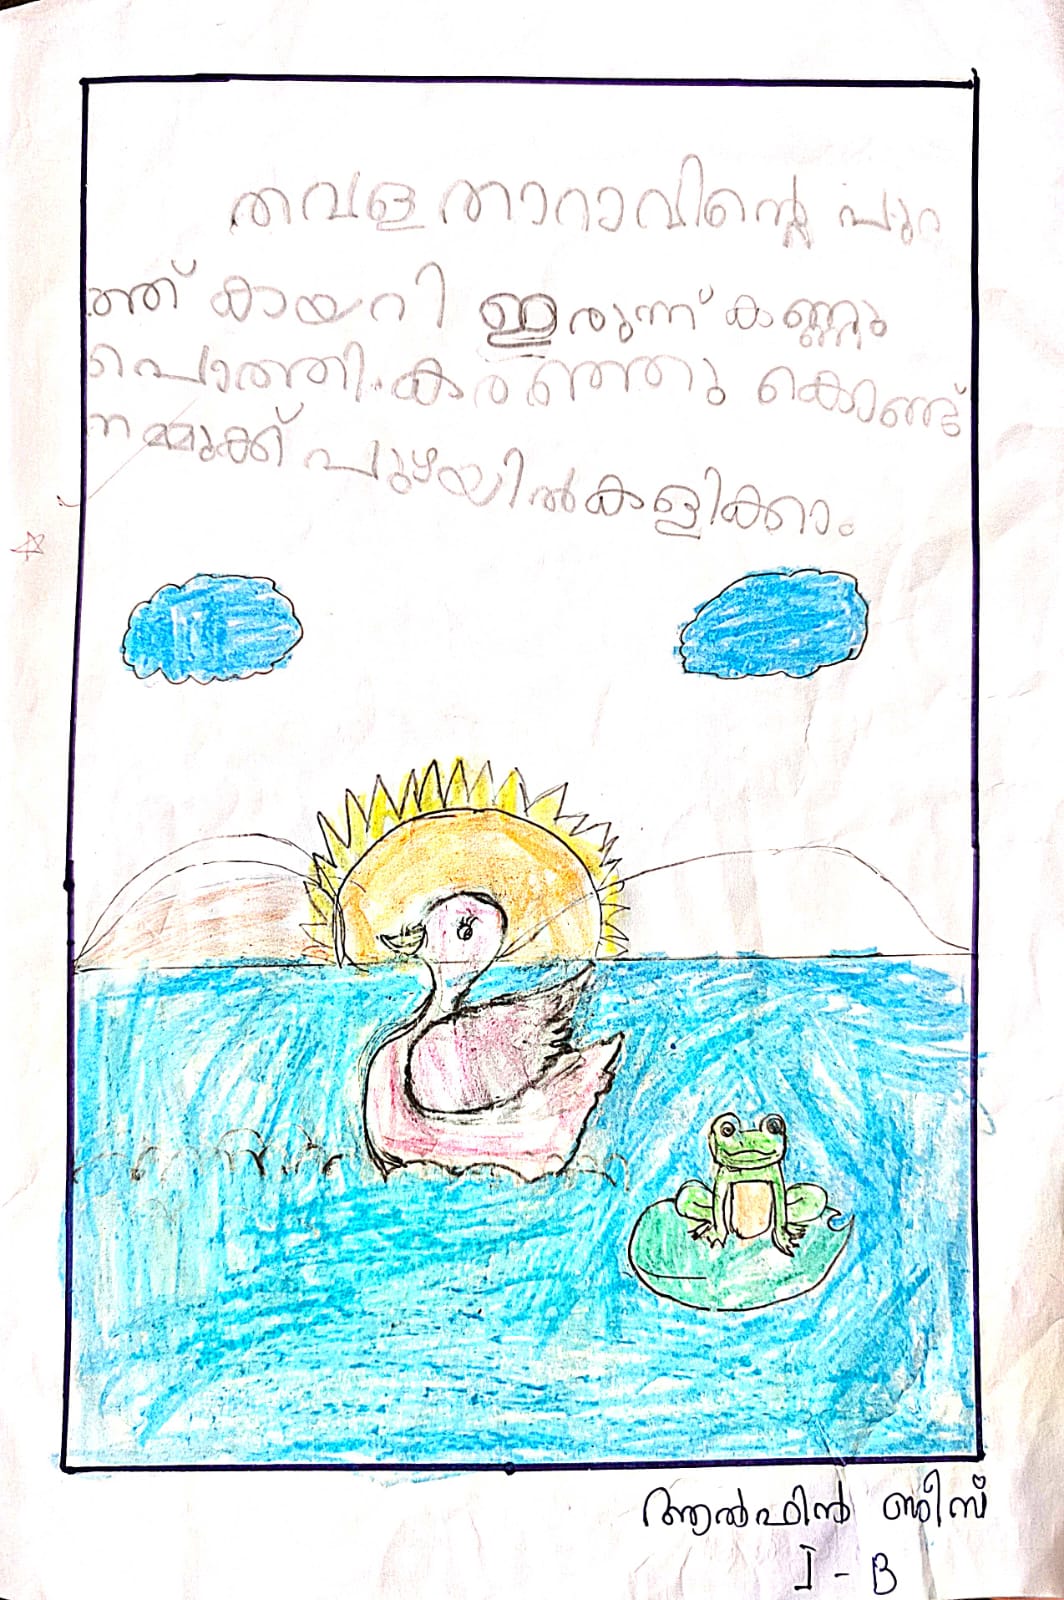 തവള താറാവിന്റെ പുറ
ത്ത് കായറി ഇരുന്ന് കണ്ണു
പൊത്തി. കരഞ്ഞു കൊണ്ട്
നമ്മുക്ക് പുഴയിൽ കളിക്കാം.
ആൽഫിൻ ബിീസ്
I - B